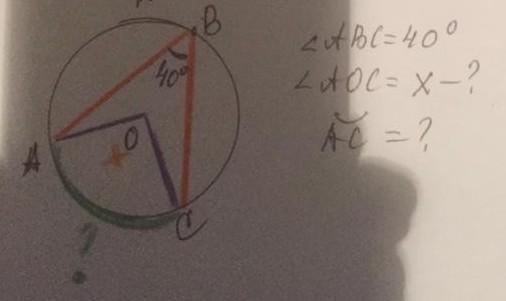 B
40°
A
O
x
C
?
∠ABC=40°
∠AOC= x - ?
A͡C = ?